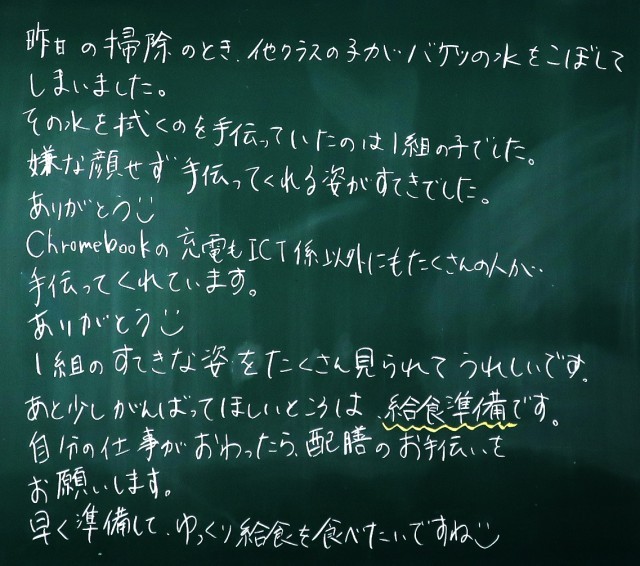 昨日の掃除のとき、他クラスの子がバケツの水をこぼして
しまいました。
その水を拭くのを手伝っていたのは1組の子でした。
嫌な顔せず手伝ってくれる姿がすてきでした。
ありがとう
Chromebookの充電もICT係以外にもたくさんの人が
手伝ってくれています。
ありがとう
1組のすてきな姿をたくさん見られてうれしいです。
あと少しがんばってほしいところは、給食準備です。
自分の仕事がおわったら、配膳のお手伝いを
お願いします。
早く準備して、ゆっくり給食を食べたいですね